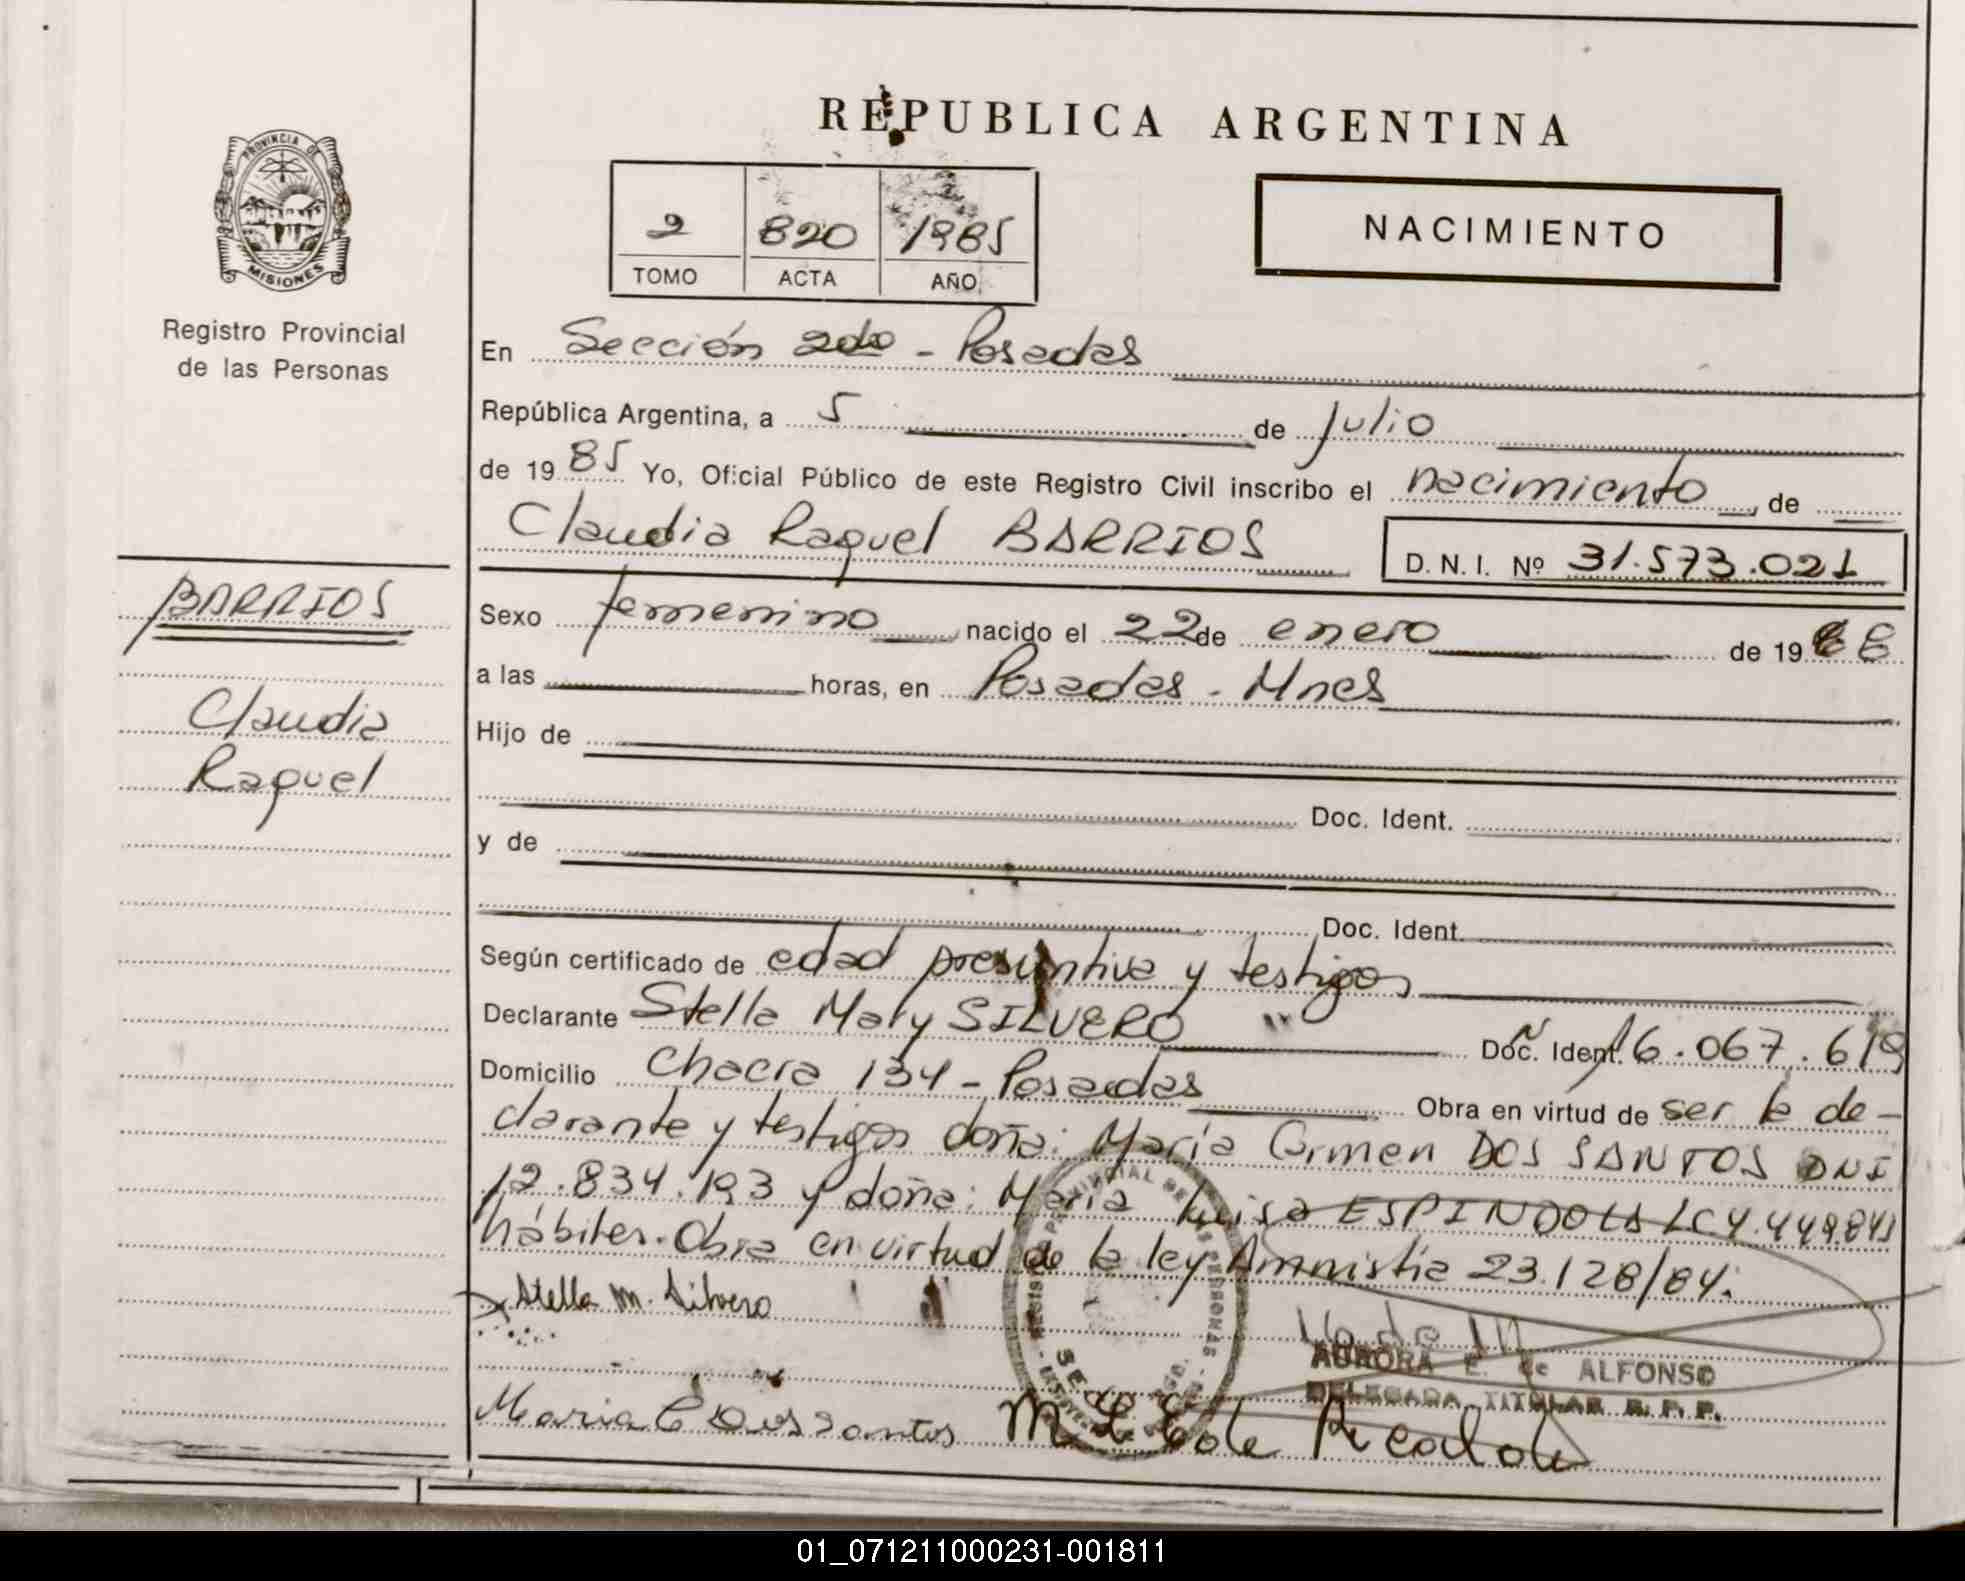 REPUBLICA ARGENTINA
PROVINCIA DE
MISIONES
Registro Provincial
de las Personas
2 820 1985
TOMO ACTA AÑO
NACIMIENTO
En Sección 2da - Posadas
República Argentina, a 5 de Julio
de 1985 Yo, Oficial Público de este Registro Civil inscribo el nacimiento de
Claudia Raquel BARRIOS D. N. I. Nº 31.573.021
BARRIOS
Claudia
Raquel
Sexo femenino nacido el 22 de enero de 19
a las horas, en Posadas - Mnes
Hijo de
Doc. Ident.
y de
Doc. Ident.
Según certificado de edad presuntiva y testigos
Declarante Stella Mary SILVERO Doc. Ident. 16.067.619
Domicilio Chacra 134 - Posadas Obra en virtud de ser la de-
clarante y testigos doña: María Carmen DOS SANTOS DNI
12.834.193 y doña: María Luisa ESPINDOLA LC 4.449.841
hábiles. Obra en virtud de la ley Amnistía 23.128/84.
Stella M. Silvero
AURORA E. de ALFONSO
DELEGADA TITULAR R. P. P.
Maria C Dos Santos
01_071211000231-001811